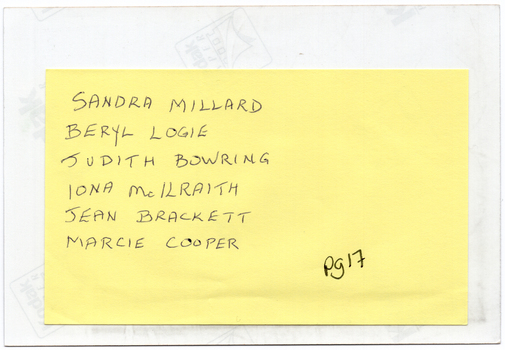 SANDRA MILLARD
BERYL LOGIE
JUDITH BOWRING
IONA McILRAITH
JEAN BRACKETT
MARCIE COOPER
Pg17